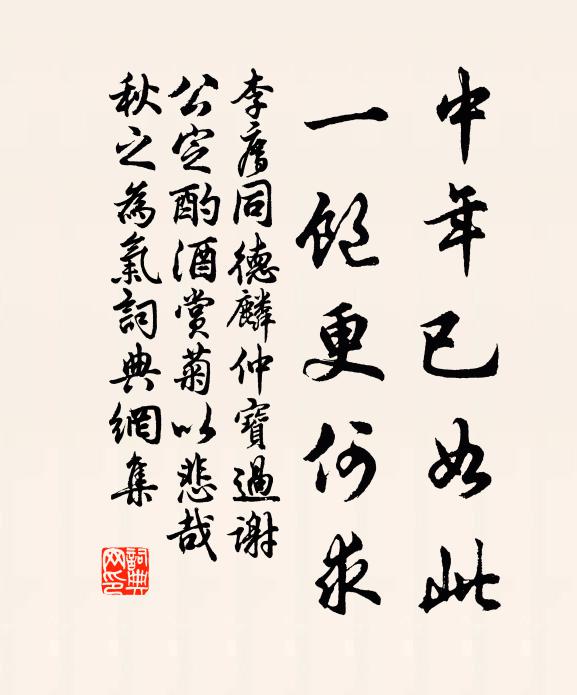 中年已如此
一飽更何求
李廌同德麟仲寶過謝
公定酌酒賞菊以悲哉
秋之為氣詞典網集
詞典
网印